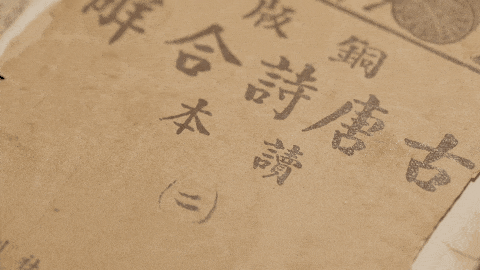 銅版
古唐詩合解
讀本
(二)